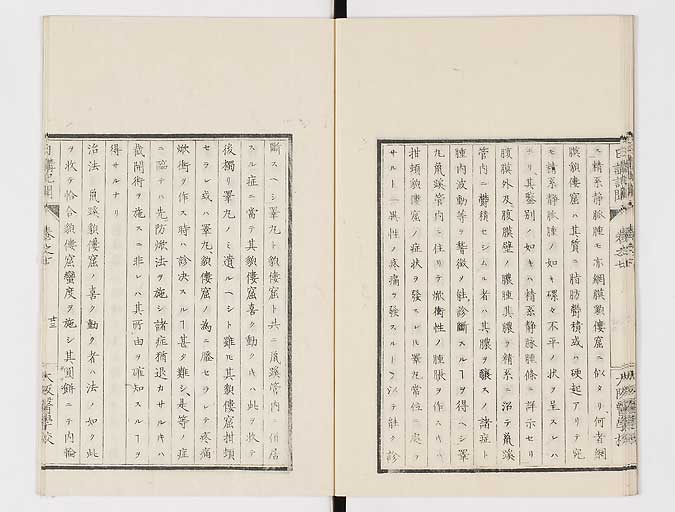 ス精系靜脈腫モ亦網膜貌僂窟ニ似タリ何者網
膜貌僂窟ハ其質ニ脂肪欝積或ハ硬起アリテ宛
モ精系靜脈腫ノ如キ磥々不平ノ狀ヲ呈スレハ
ナリ其鑒別ノ如キハ精系靜脈腫條ニ詳示セリ
腹膜外及腹膜壁ノ膿腫其膿ヲ精系ニ沿テ鼠蹊
管内ニ欝積セシムル者ハ其膿ヲ釀スノ諸症ト
腫内波動等ヲ
診斷スルヿヲ得ヘシ睪
丸鼠蹊管内ニ住リテ焮衝性ノ腫脹ヲ作スキハ
柑頓貌僂窟ノ症狀ヲ發スレ𪜈睪丸常位ニ
サルト一異性ノ疼痛ヲ發スルト
ヲ以テ能ク診
斷スヘシ睪丸ト貌僂窟ト共ニ鼠蹊管内ニ併居
スル症ニ當テ其貌僂窟喜ク動クキハ此ヲ收テ
後獨リ睪丸ノミ遺ルヘシト雖モ其貌僂窟柑頓
セラレ或ハ睪丸貌僂窟ノ為ニ壓セラレテ疼痛
焮衝ヲ作ス時ハ診決スルヿ甚タ難シ是等ノ症
ニ臨テハ先防焮法ヲ施シ諸症猶退カサルキハ
截開術ヲ施スニ非レハ其所由ヲ確知スルヿヲ
得サルナリ
治法 鼠蹊貌僂窟ノ喜ク動ク者ハ法ノ如ク此
ヲ收テ恰合貌僂窟
度ヲ施シ其圓餅ニテ内輪
日講記聞 卷之七 廿三 大阪醫學校